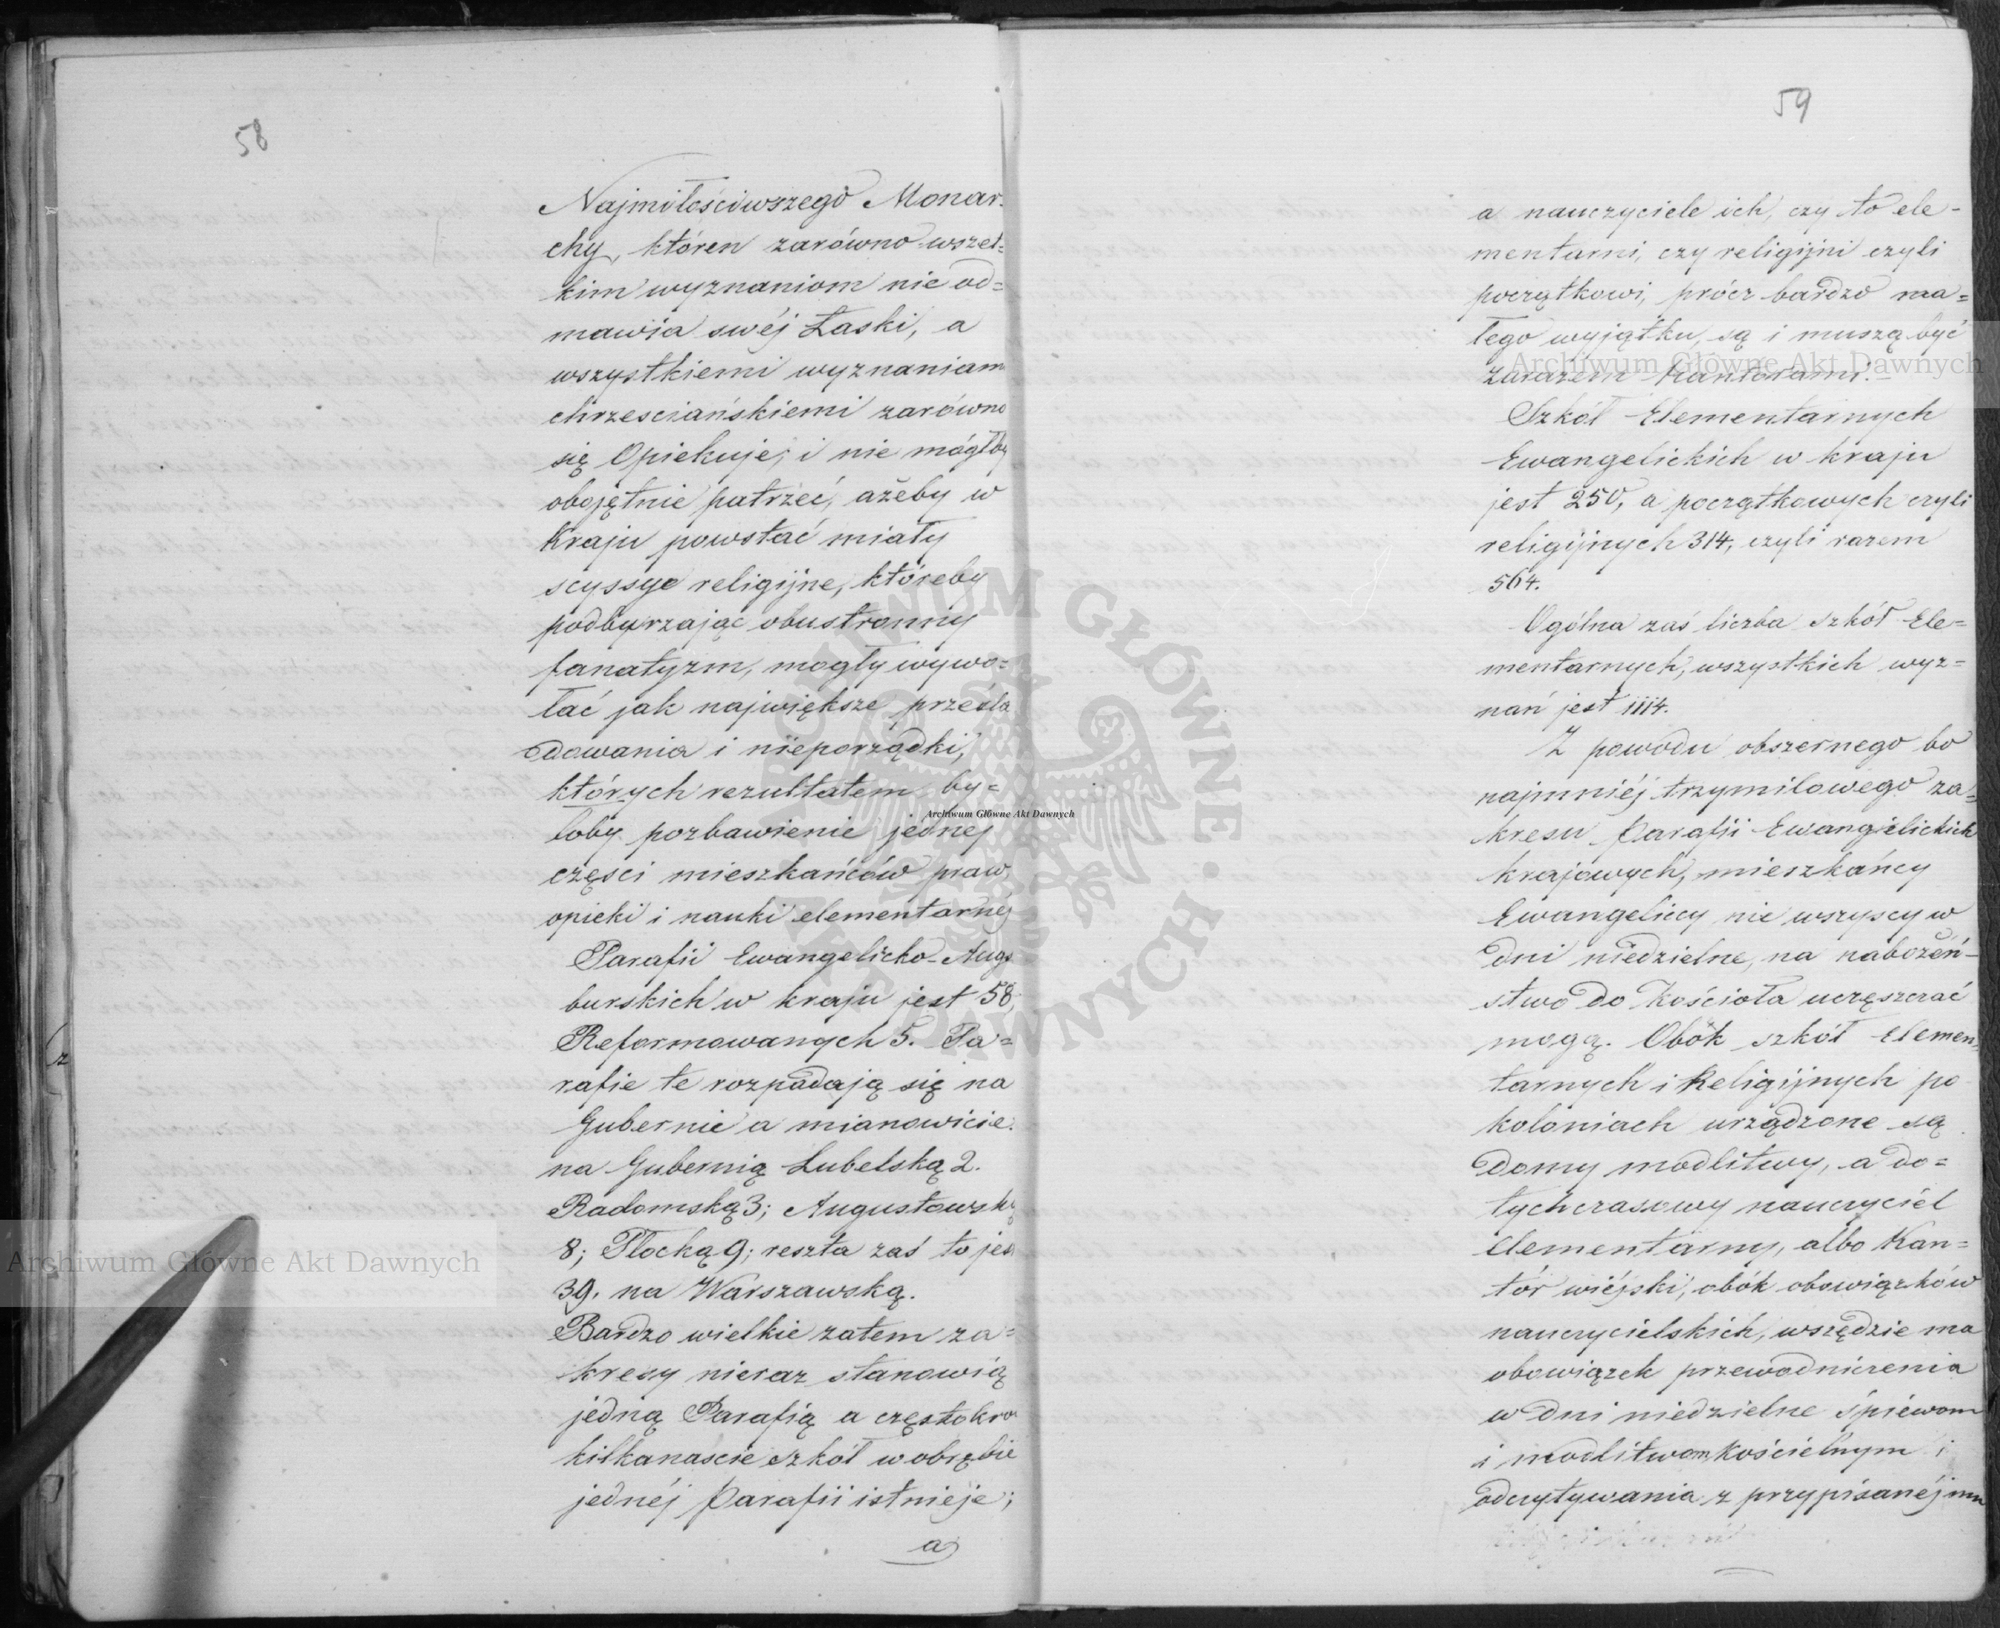 58
Najmiłościwszego Monar-
chy, któren zarówno wszel=
kim wyznaniom nie od=
mawia swéj Łaski, a
wszystkiemi wyznaniam
chrzesciańskiemi zarówno
się Opiekuje, i nie mógłby
obojętnie patrzeć, ażeby w
Kraju powstać miały
scyssye religijne, któreby
podburzając obustronny
fanatyzm, mogły wywo=
łać jak największe prześla
dowania i nieporządki,
których rezultatem by=
łoby pozbawienie jednej
częsci mieszkańców praw,
opieki i nauki elementarnéj
Parafii Ewangelicko-Augs
burskich w kraju jest 58,
Reformowanych 5. Pa=
rafie te rozpadają się na
Gubernie a mianowicie.
na Gubernią Lubelską 2.
Radomską 3; Augustowską
8; Płocką 9; reszta zaś to jes
39. na Warszawską.
Bardzo wielkie zatem za=
kresy nieraz stanowią
jedną Parafią a częstokro
kilkanascie szkół w obrębie
jednéj Parafii istnieje;
a
59
a nauczyciele ich, czy to ele-
mentarni, czy religijni czyli
początkowi, prócz bardzo ma=
łego wyjątku, są i muszą być
zarazem kantorami.-
Szkół Elementarnych
Ewangelickich w kraju
jest 250, a początkowych czyli
religijnych 314, czyli razem
564.
Ogólna zaś liczba szkół Ele=
mentarnych, wszystkich wyz=
nań jest 1114.
Z powodu obszernego bo
najmniéj trzymilowego za=
kresu Parafii Ewangielickich
krajowych, mieszkańcy
Ewangeliccy nie wszyscy w
dni niedzielne, na nabożeń-
stwo do Kościoła uczęszczać
mogą. Obók szkół Elemen
tarnych i Religijnych po
koloniach urządzone są
Domy modlitwy, a do=
tychczasowy nauczyciel
Elementarny, albo Kan=
tór wiéjski, obók obowiązków
nauczycielskich, wszędzie ma
obowiązek przewodniczenia
w dni niedzielne śpiéwom
i modlitwom kościelnym i
odczytywania z przypisanéj mu
Archiwum Główne Akt Dawnych
Archiwum Główne Akt Dawnych
Archiwum Główne Akt Dawnych